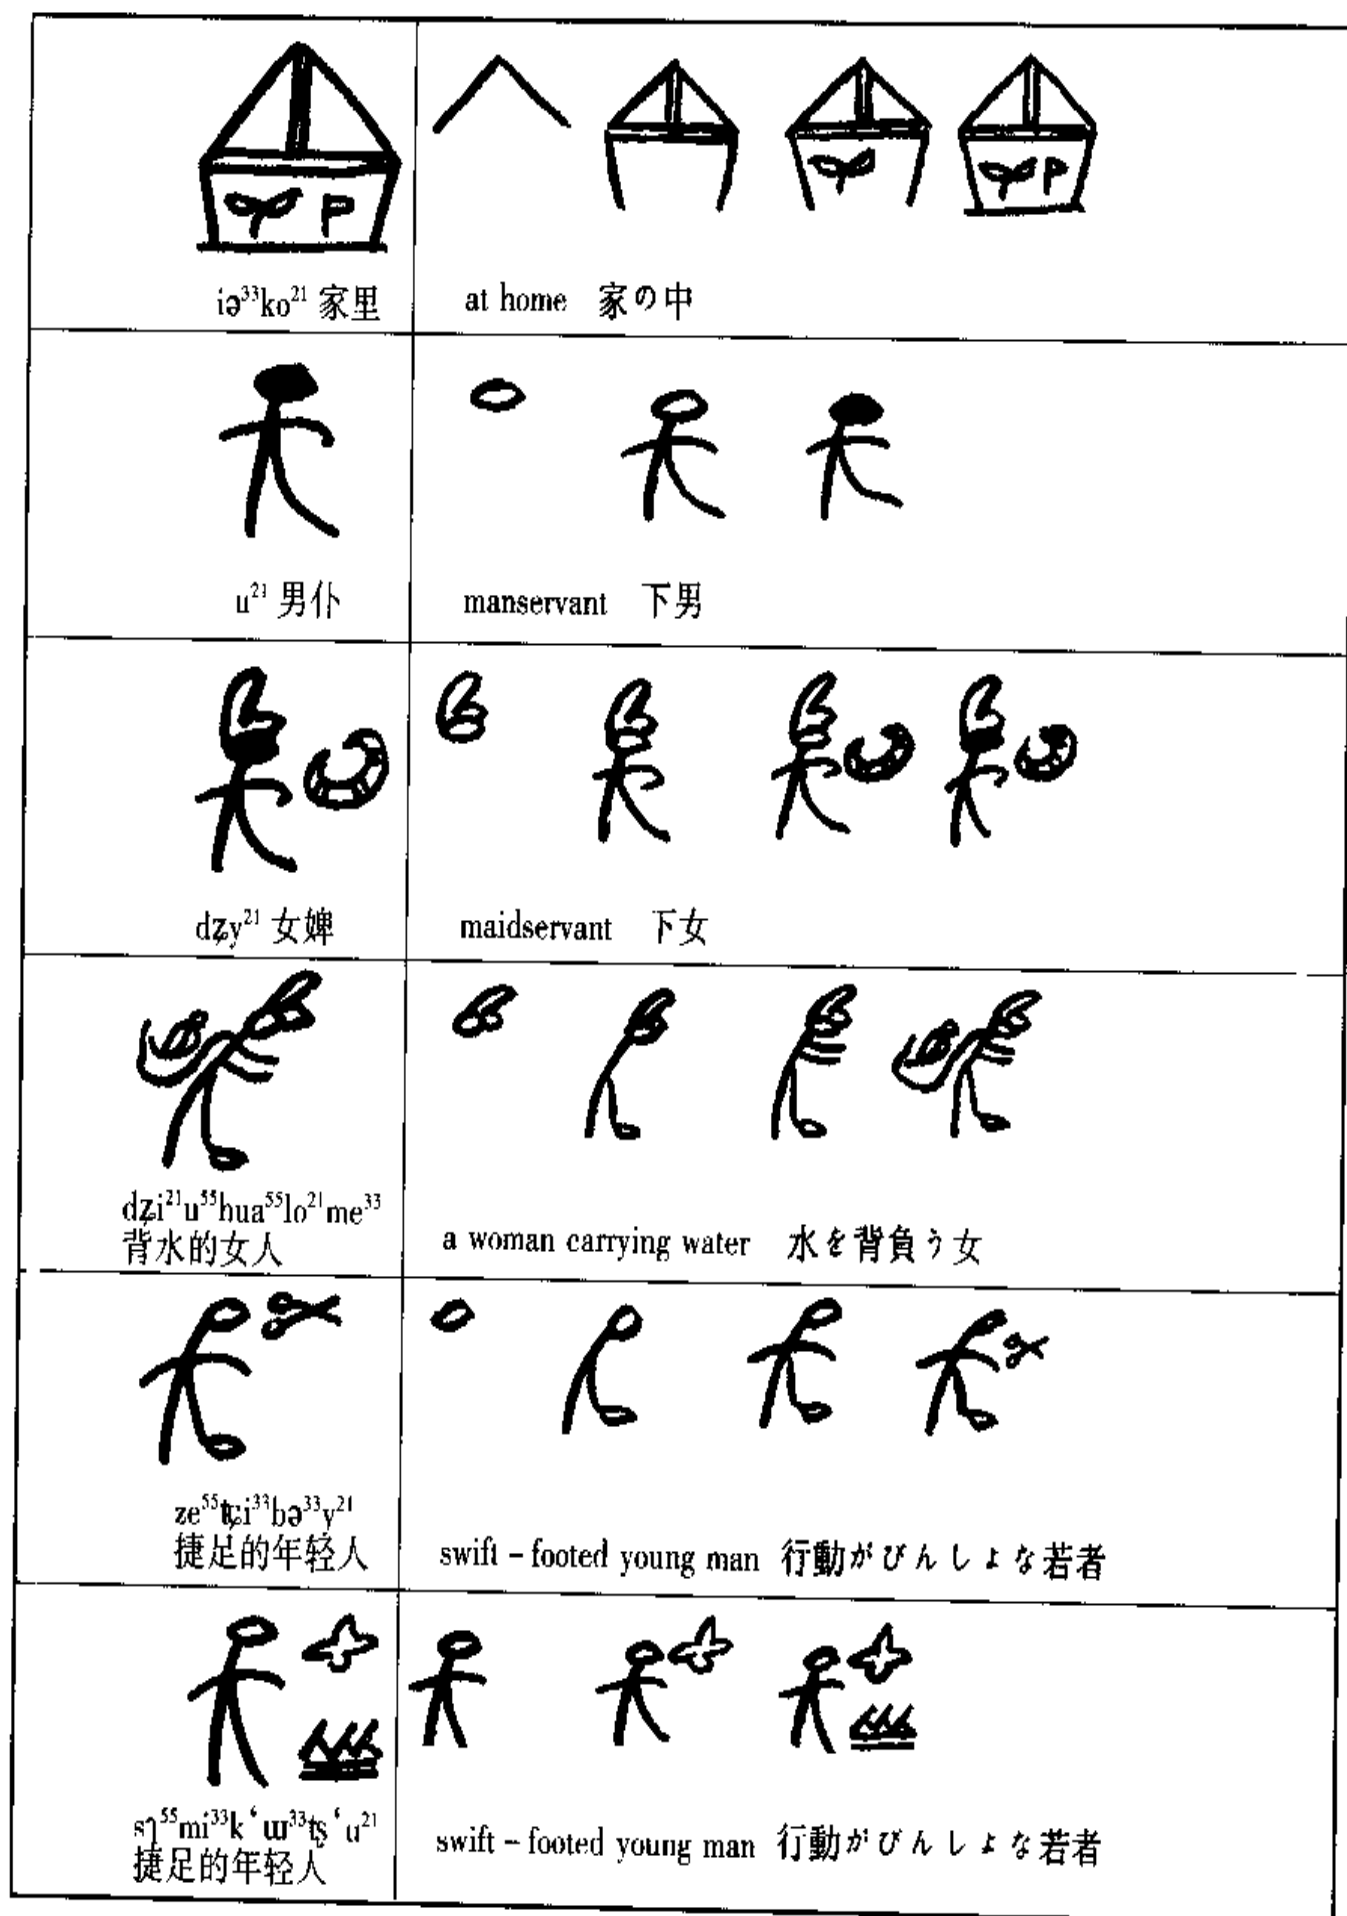 iə³³ko²¹ 家里
at home 家の中
u²¹ 男仆
manservant 下男
dʐy²¹ 女婢
maidservant 下女
dʐi²¹u⁵⁵hua⁵⁵lo²¹me³³
背水的女人
a woman carrying water 水を背負う女
ze⁵⁵tɕi³³bə³³y²¹
捷足的年轻人
swift－footed young man 行動がびんしょな若者
sʅ⁵⁵mi³³k‘ɯ³³tʂ‘u²¹
捷足的年轻人
swift－footed young man 行動がびんしょな若者